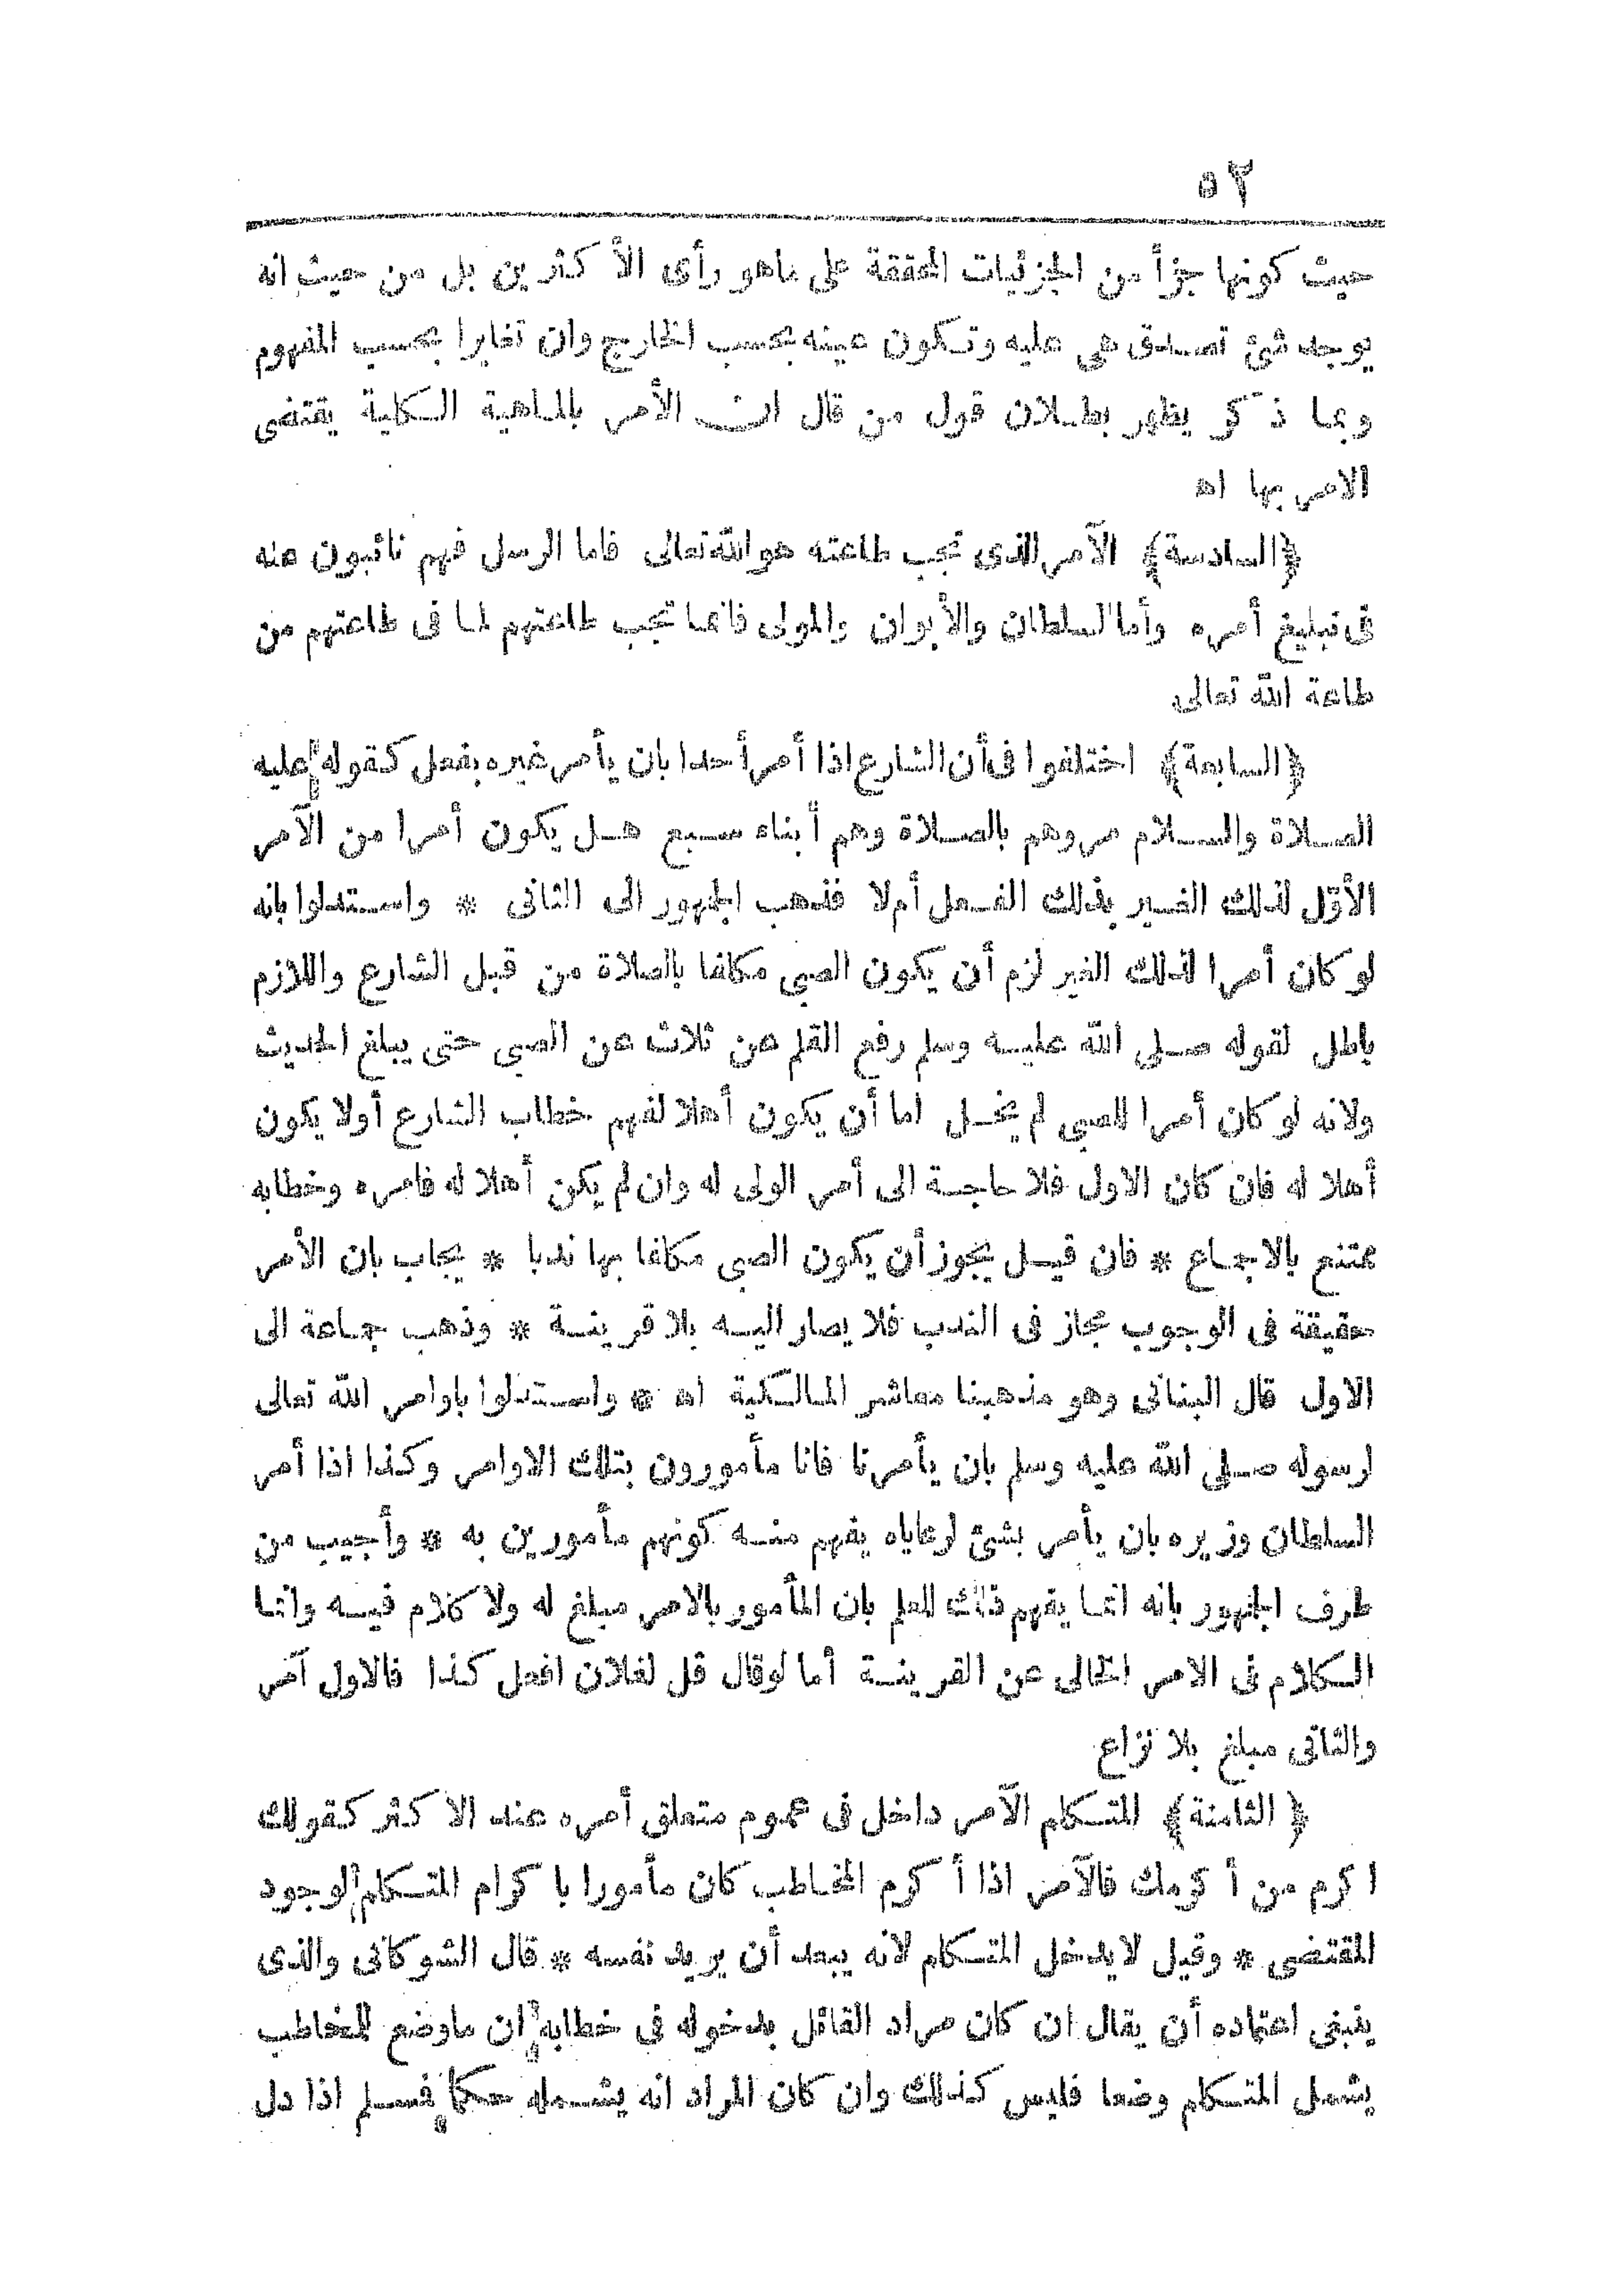 ٥٢
حيث كونها جزأ من الجزئيات المحققة على ماهو رأى الأ كثرين بل من حيث انه
يوجد شئ تصدق هى عليه وتكون عينه بحسب الخارج وان تغايرا بحسب المفهوم
وبما ذ كر يظهر بطلان قول من قال ان الأمر بالماهية الكلية يقتضى
الامر بها اه
﴿السادسة﴾ الآمر الذى تجب طاعته هو الله تعالى فاما الرسل فهم نائبون عنه
فى تبليغ أمره وأما السلطان والأبوان والمولى فانما تجب طاعتهم لما فى طاعتهم من
طاعة الله تعالى
﴿السابعة﴾ اختلفوا فى أن الشارع اذا أمر أحدا بان يأمر غيره بفعل كقوله عليه
الصلاة والسلام مروهم بالصلاة وهم أبناء سبع هل يكون أمرا من الآمر
الأوّل لذلك الغير بذلك الفعل أم لا فذهب الجمهور الى الثانى * واستدلوا بانه
لو كان أمرا لذلك الغير لزم أن يكون الصبى مكلفا بالصلاة من قبل الشارع واللازم
باطل لقوله صلى الله عليه وسلم رفع القلم عن ثلاث عن الصبى حتى يبلغ الحديث
ولانه لو كان أمرا للصبى لم يخل اما أن يكون أهلا لفهم خطاب الشارع أولا يكون
أهلا له فان كان الاول فلا حاجة الى أمر الولى له وان لم يكن أهلا له فامره وخطابه
ممتنع بالاجماع * فان قيل يجوز أن يكون الصبى مكلفا بها ندبا * يجاب بان الأمر
حقيقة فى الوجوب مجاز فى الندب فلا يصار اليه بلا قرينة * وذهب جماعة الى
الاول قال البنانى وهو مذهبنا معاشر المالكية اه * واستدلوا باوامر الله تعالى
لرسوله صلى الله عليه وسلم بان يأمرنا فانا مأمورون بتلك الاوامر وكذا اذا أمر
السلطان وزيره بان يأمر بشئ لرعاياه يفهم منه كونهم مأمورين به * وأجيب من
طرف الجمهور بانه انما يفهم ذلك للعلم بان المأمور بالامر مبلغ له ولا كلام فيه وانما
الكلام فى الامر الخالى عن القرينة أما لوقال قل لفلان افعل كذا فالاول آمر
والثانى مبلغ بلا نزاع
﴿الثامنة﴾ المتكلم الآمر داخل فى عموم متعلق أمره عند الا كثر كقولك
ا كرم من أ كرمك فالآمر اذا أ كرم المخاطب كان مأمورا با كرام المتكلم لوجود
المقتضى * وقيل لايدخل المتكلم لانه يبعد أن يريد نفسه * قال الشوكانى والذى
ينبغى اعتماده أن يقال ان كان مراد القائل بدخوله فى خطابه ان ماوضع للمخاطب
يشمل المتكلم وضعا فليس كذلك وان كان المراد انه يشمله حكما فسلم اذا دل